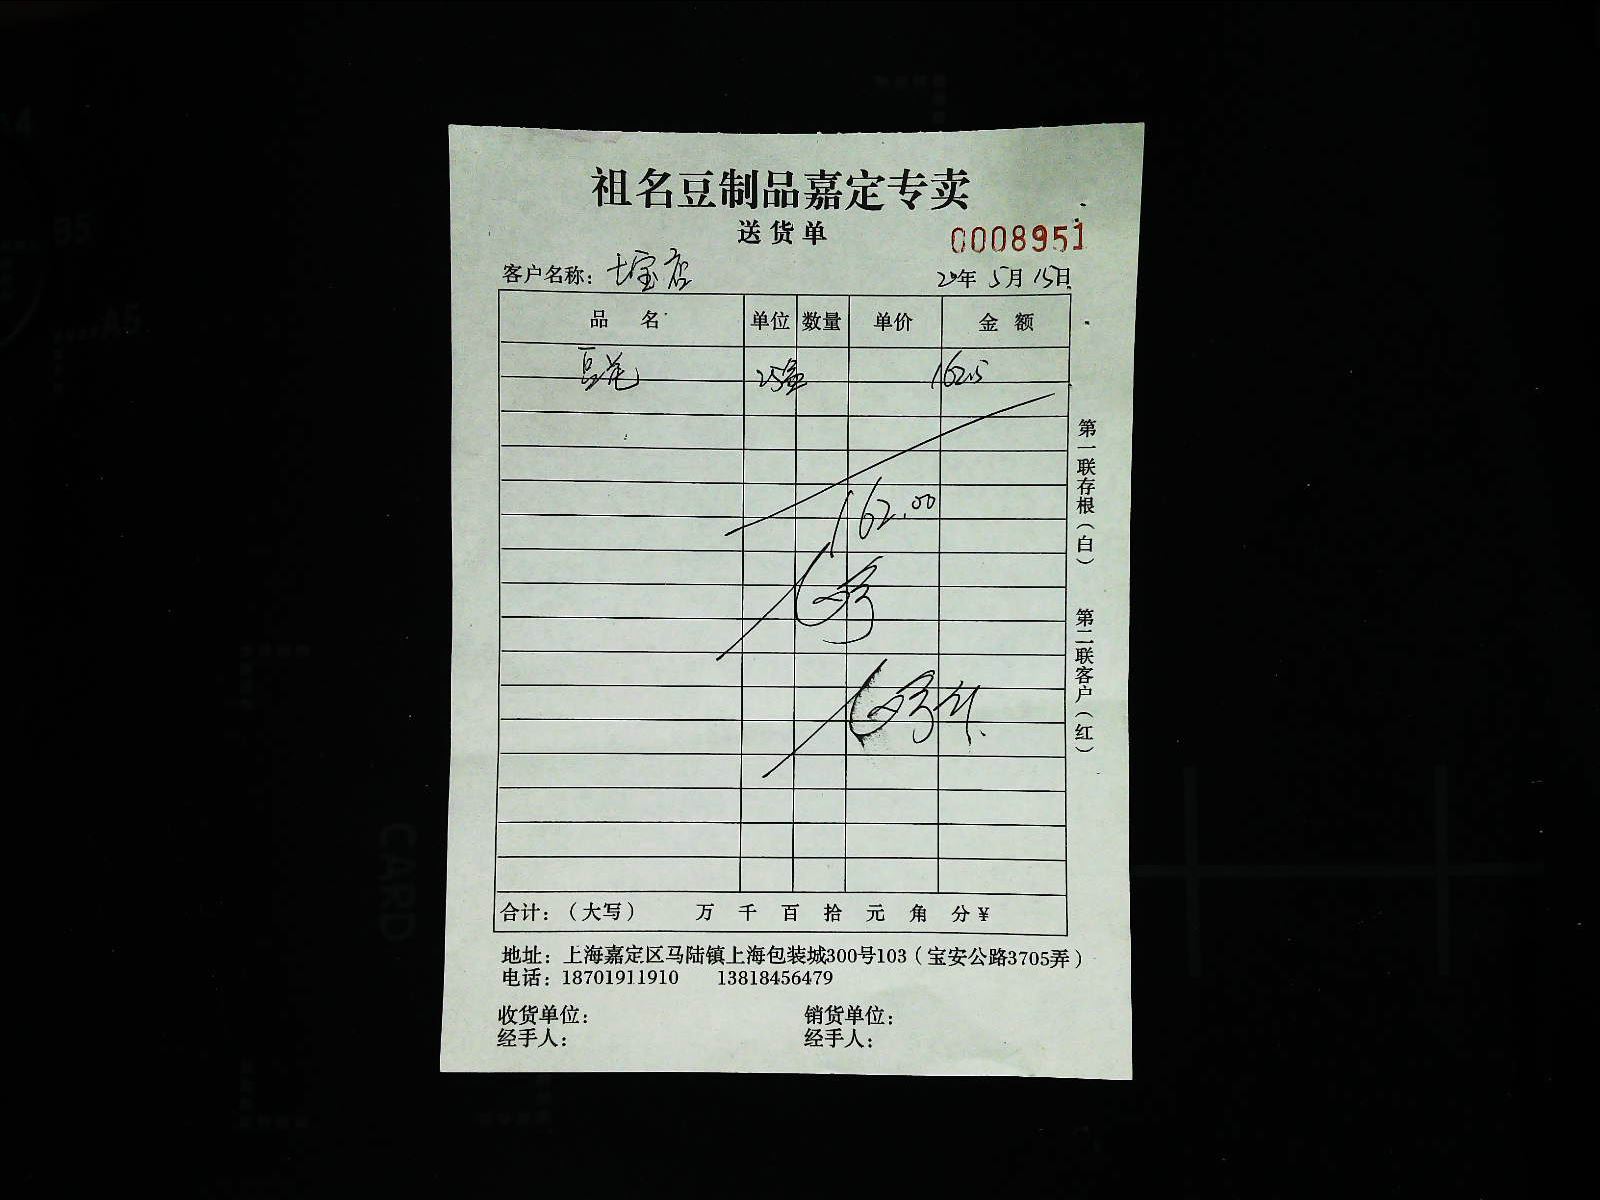 祖名豆制品嘉定专卖
送货单
0008951
客户名称：七宝店 20年 5月 15日
品 名 单位 数量 单价 金 额
豆花 25盒 162.5
162.00
第一联存根（白） 第二联客户（红）
合计：（大写） 万 千 百 拾 元 角 分 ¥
地址：上海嘉定区马陆镇上海包装城300号103（宝安公路3705弄）
电话：18701911910 13818456479
收货单位： 销货单位：
经手人： 经手人：